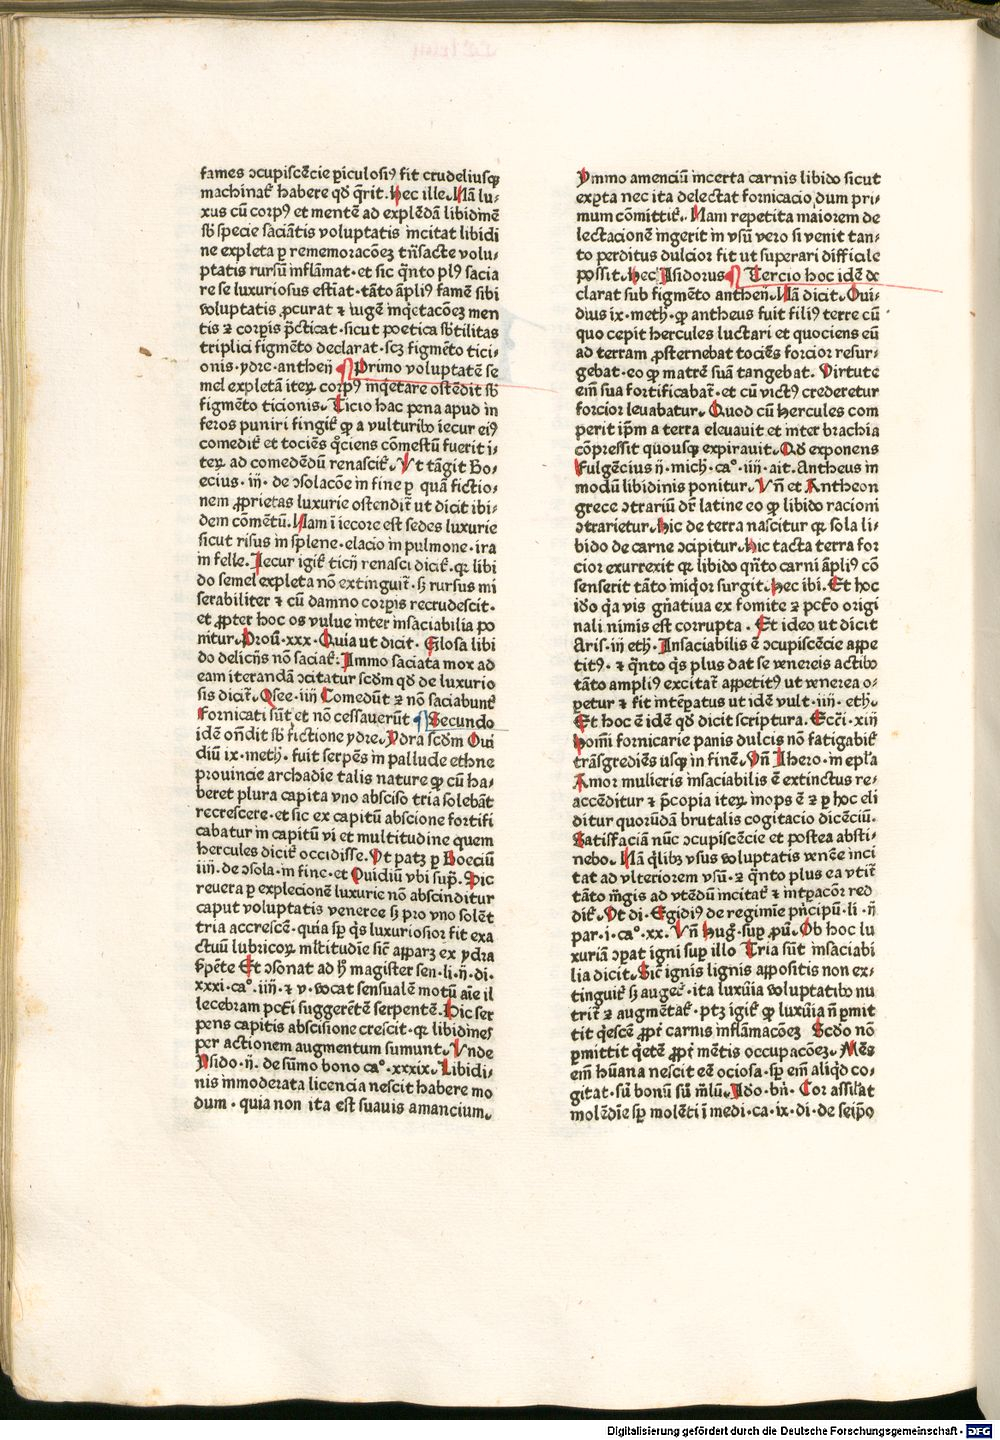 fames ↄcupiscēcie ꝑiculosiꝰ fit crudeliusqꝫ
machinat᷑ habere qđ q̄rit. Hec ille. Nā lu⸗
xus cū corpꝰ et mentē ad explēdā libidinē
sb̄ specie saciātis voluptatis incitat libidi
ne expleta ꝑ rememoracōeꝫ trāsacte volu⸗
ptatis rursū inflāmat · et sic q̄nto plꝰ sacia
re se luxuriosus estiat · tāto āpliꝰ famē sibi
voluptatis ꝓcurat ⁊ iugē inq̄etacōeꝫ men
tis ⁊ corꝑis p̄cticat · sicut poetica sb̄tilitas
triplici figmēto declarat · scꝫ figmēto tici⸗
onis · ydre · antheij ¶ Primo voluptatē se
mel expletā iteꝝ corpꝰ inq̄etare ostēdit sb̄
figmēto ticionis. Ticio hac pena apud in
feros puniri fingit᷑ ꝙ a vulturibꝰ iecur eiꝰ
comedit᷑ et tociēs q̊ciens cōmestū fuerit i⸗
teꝝ ad comedēdū renascit᷑. Ut tāgit Bo⸗
ecius · iij · de ↄsolacōe in fine ꝑ quā fictio⸗
nem ꝓprietas luxurie ostendit᷑ ut dicit ibi⸗
dem cōmētū. Nam ī iecore est sedes luxurie
sicut risus in splene · elacio in pulmone · ira
in felle. Iecur igit᷑ ticij renasci dicit᷑. qꝛ libi
do semel expleta nō extinguit᷑ · sꝫ rursus mi
serabiliter ⁊ cū damno corꝑis recrudescit ·
et ꝓpter hoc os vulue inter insaciabilia po
nitur. Prou᷑ · xxx · Quia ut dicit · Glosa libi
do delicijs nō saciat᷑: Immo saciata mox ad
eam iterandā ↄcitatur scđm qđ de luxurio
sis dicit᷑. Osee · iiij Comedūt ⁊ nō saciabunt᷑
Fornicati sūt et nō cessauerūt ¶ Secundo
idē on̄dit sb̄ fictione ydre. Ydra scđm Oui
diū ix · meth · fuit serpēs in pallude ethne
prouincie archadie talis nature ꝙ cū ha⸗
beret plura capita vno absciso tria solebāt
recrescere · et sic ex capitū abscione fortifi
cabatur in capitū vi et multitudine quem
hercules dicit᷑ occidisse. Ut patꝫ ꝑ Boeciū
iiij · de ↄsola · in fine · et Ouidiū vbi sup̄. Sic
reuera ꝑ explecionē luxurie nō abscinditur
caput voluptatis veneree sꝫ pro vno solēt
tria accrescē · quia sꝑ q̄s luxuriosior fit exa
ctuū lubricoꝝ mltitudīe sic᷑ apparꝫ ex ydra
sꝑēte Et ↄsonat ad hꝫ magister sen · li · ij · di ·
xxxi · caº · iiij · ⁊ v · vocat sensualē motū aīe il
lecebram pctī suggerētē serpentē. Sic ser
pens capitis abscisione crescit · qꝛ libidines
per actionem augmentum sumunt. Unde
Ysido · ij · de sūmo bono caº · xxxix. Libidi⸗
nis inmoderata licencia nescit habere mo
dum · quia non ita est suauis amancium.
Ymmo amenciū incerta carnis libido sicut
exꝑta nec ita delectat fornicacio dum pri⸗
mum cōmittit᷑. Nam repetita maiorem de
lectacionē ingerit in vsū vero si venit tan⸗
to perditus dulcior fit ut superari difficile
possit. Hec Isidorus ¶ Tercio hoc idē de
clarat sub figmēto antheij. Nā dicit. Oui⸗
dius ix · meth · ꝙ antheus fuit filiꝰ terre cū
quo cepit hercules luctari et quociens eū
ad terram ꝓsternebat tociēs forcior resur⸗
gebat · eo ꝙ matrē suā tangebat. Virtute
em̄ sua fortificabat᷑ · et cū victꝰ crederetur
forcior leuabatur. Quod cū hercules com
perit ip̄m a terra eleuauit et inter brachia
cōpressit quousqꝫ expirauit. Qđ exponens
Fulgēcius ij · mich · caº · iiij · ait. Antheus in
modū libidinis ponitur. Vn̄ et Antheon
grece ↄtrariū dr̄ latine eo ꝙ libido racioni
ↄtrarietur. Hic de terra nascitur qꝛ sola li⸗
bido de carne ↄcipitur. Hic tacta terra for
cior exurrexit qꝛ libido q̄nto carni āpliꝰ cō
senserit tāto iniq̊or surgit. Hec ibi. Et hoc
iđo q̊a vis gn̄atiua ex fomite ⁊ pctō origi
nali nimis est corrupta · Et ideo ut dicit
Aris · iij eth · Insaciabilis ē ↄcupiscēcie appe
titꝰ · ⁊ q̄nto q̊s plus dat se venereis actibꝰ
tāto ampliꝰ excitat᷑ appetitꝰ ut venerea o⸗
ꝑetur ⁊ fit intēꝑatus ut idē vult · iiij · eth ·
Et hoc ē idē qđ dicit scriptura. Ecci᷑ · xiij
Homī fornicarie panis dulcis nō fatigabit᷑
trāsgrediēs usqꝫ in finē. Vn̄ Ihero · in epl̄a
Amor mulieris insaciabilis ē extinctus re⸗
accēditur ⁊ p̄copia iteꝝ inops ē ⁊ ꝑ hoc eli
ditur quorūdā brutalis cogitacio dicēciū.
Satisfaciā nūc ↄcupiscēcie et postea absti⸗
nebo. Nā q̄libꝫ vsus voluptatis venēe inci
tat ad vlteriorem vsū · ⁊ q̄nto plus ea vtit᷑
tāto mg̊is ad vtēdū incitat᷑ ⁊ intꝑacōr red
dit᷑. Ut di · Egidiꝰ de regimīe pn̄cipū · li · ij
par · i · caº · xx. Vn̄ Hug̊ · suꝑ ꝓu᷑. Ob hoc lu
xuriā ↄꝑat igni suꝑ illo Tria sūt insaciabi
lia dicit. Sic᷑ ignis lignis appositis non ex⸗
tinguit᷑ sꝫ auget᷑ · ita luxūia voluptatibꝰ nu
trit᷑ ⁊ augmētat᷑ · ptꝫ igit᷑ ꝙ luxūia n̄ ꝑmit
tit q̊escē ꝓpt᷑ carnis inflāmacōeꝫ Scđo nō
ꝑmittit q̊etē ꝓpt᷑ mētis occupacōeꝫ. Mēs
em̄ hūana nescit eē ociosa · sꝑ em̄ aliq̊d co⸗
gitat · siū bonū siū mlū. Ido · bn̄ · Cor assilat
molēdīe sꝑ molēti ī medi · ca · ix · di · de seip̄o
Digitalisierung gefördert durch die Deutsche Forschungsgemeinschaft - DFG